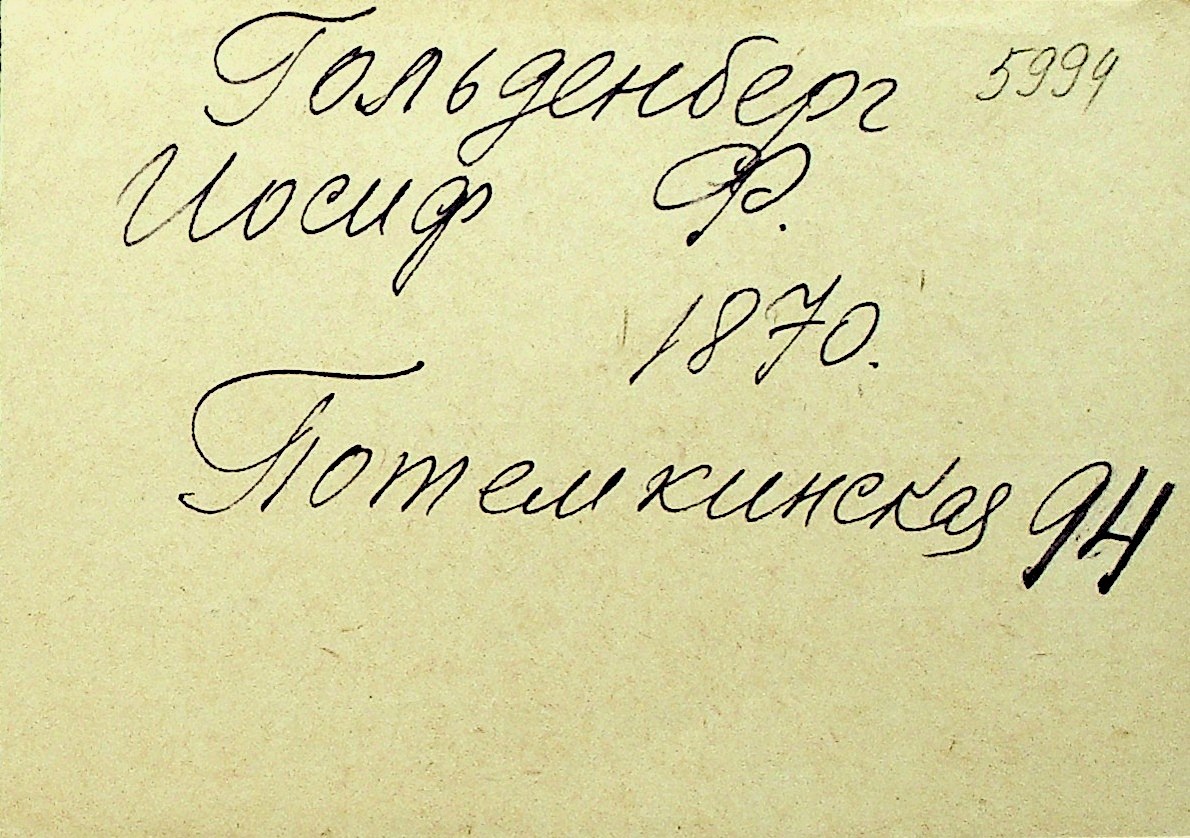 Гольденберг 5994
Иосиф Ф.
1870.
Потемкинская 94